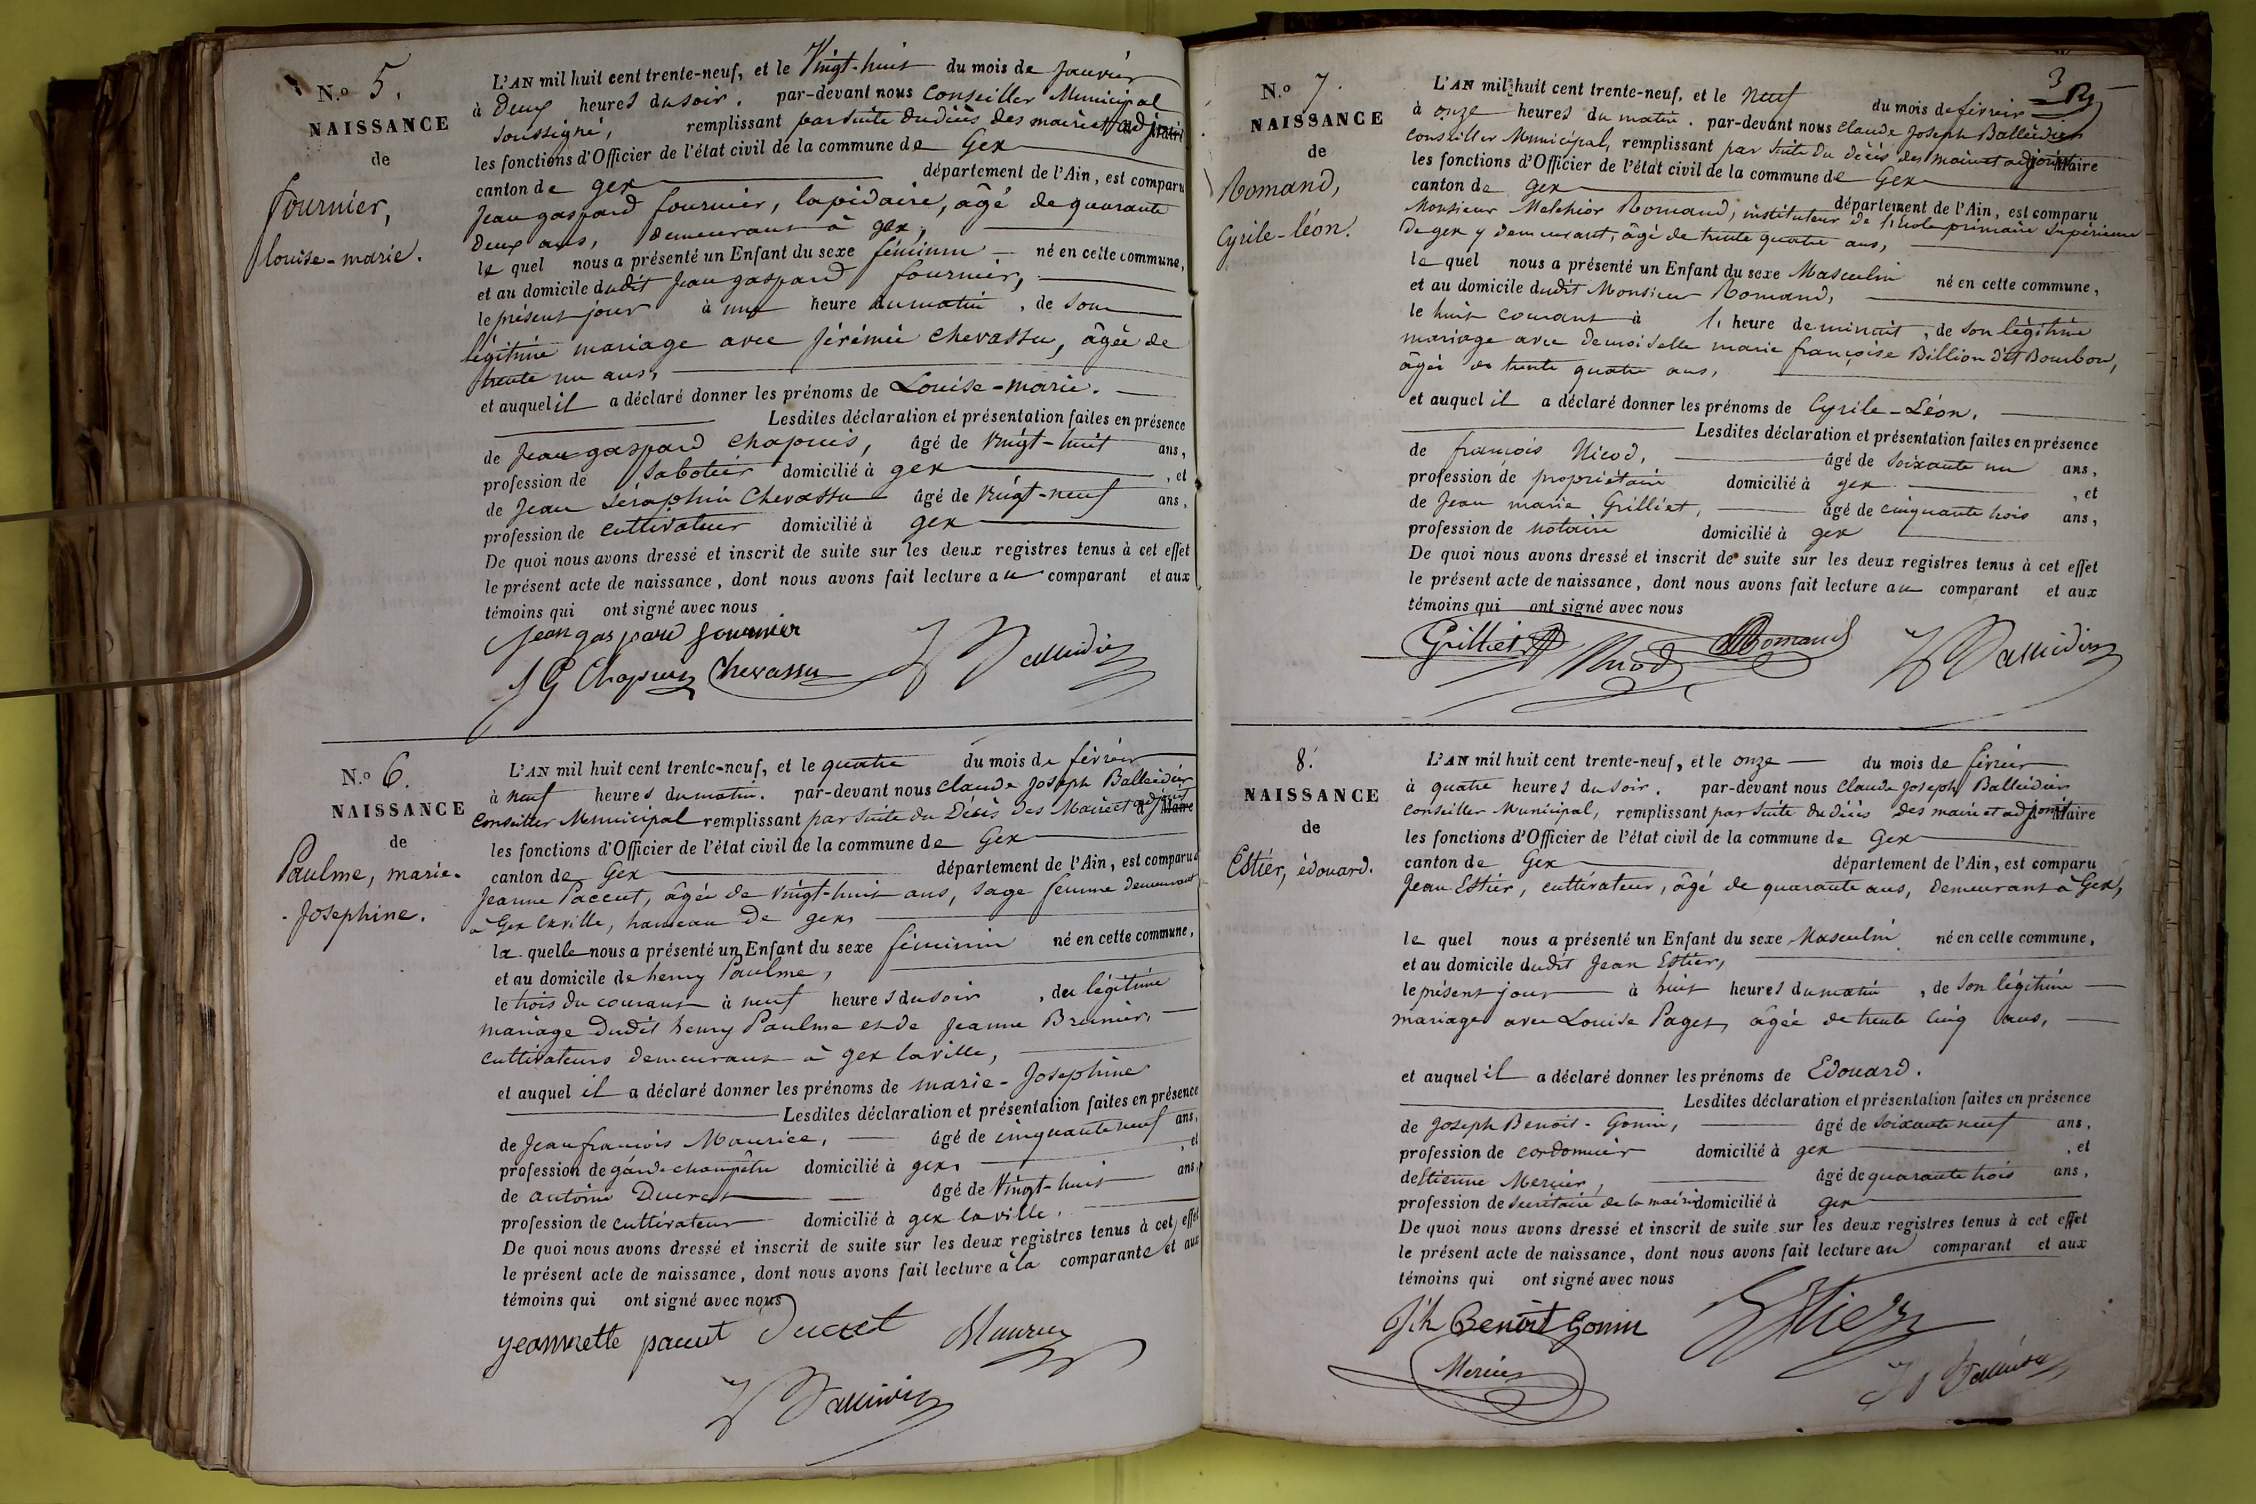 N.o 5.
NAISSANCE
de
fournier,
louise-marie.
L'AN mil huit cent trente-neuf, et le Vingt-huit du mois de Janvier
à deux heures du soir. par-devant nous Conseiller Municipal
soussigné, remplissant par suite du décès des maire et adjoint Maire
les fonctions d'Officier de l'état civil de la commune de Gex
canton de gex département de l'Ain, est comparu
Jean gaspard fournier, lapidaire, âgé de quarante
deux ans, demeurant à gex,
le quel nous a présenté un Enfant du sexe féminin né en cette commune,
et au domicile dudit Jean gaspard fournier,
le présent jour à une heure du matin, de son
légitime mariage avec Jérémie Chevassu, âgée de
trente un ans,
et auquel il a déclaré donner les prénoms de Louise-marie.
Lesdites déclaration et présentation faites en présence
de Jean gaspard Chapuis, âgé de vingt-huit ans,
profession de sabotier domicilié à gex, et
de Jean Séraphin Chevassu âgé de vingt-neuf ans,
profession de cultivateur domicilié à gex
De quoi nous avons dressé et inscrit de suite sur les deux registres tenus à cet effet
le présent acte de naissance, dont nous avons fait lecture au comparant et aux
témoins qui ont signé avec nous
Jean gaspard fournier
J G Chapuis Chevassu
N.o 6.
NAISSANCE
de
Paulme, marie-
-Josephine.
L'AN mil huit cent trente-neuf, et le quatre du mois de février
à neuf heures du matin. par-devant nous Claude Joseph Balleidier
Conseiller Municipal remplissant par suite du Décès des Maire et adjoint Maire
les fonctions d'Officier de l'état civil de la commune de Gex
canton de Gex département de l'Ain, est comparue
Jeanne Paccut, âgée de vingt-huit ans, sage femme demeurant
à Gex laville, hameau de gex,
la quelle nous a présenté un Enfant du sexe féminin né en cette commune,
et au domicile de henry Paulme,
le trois du courant à neuf heures du soir, du légitime
mariage dudit henry Paulme et de Jeanne Brunier,
cultivateurs demeurant à gex laville,
et auquel il a déclaré donner les prénoms de marie-Josephine
Lesdites déclaration et présentation faites en présence
de Jean françois Maurice, âgé de cinquante neuf ans,
profession de garde champêtre domicilié à gex, et
de antoine Ducret âgé de Vingt-huit ans,
profession de cultivateur domicilié à gex laville.
De quoi nous avons dressé et inscrit de suite sur les deux registres tenus à cet effet
le présent acte de naissance, dont nous avons fait lecture à la comparante et aux
témoins qui ont signé avec nous
Jeannette paccut Ducret Maurice
3
N.o 7.
NAISSANCE
de
Romand,
Cyrile-léon.
L'AN mil huit cent trente-neuf, et le Neuf du mois de février
à onze heures du matin. par-devant nous Claude Joseph Balleidier
Conseiller Municipal, remplissant par suite du décès des maire et adjoint Maire
les fonctions d'Officier de l'état civil de la commune de Gex
canton de gex département de l'Ain, est comparu
Monsieur Melchior Romand, instituteur de l'école primaire supérieure
de gex y demeurant, âgé de trente quatre ans,
le quel nous a présenté un Enfant du sexe Masculin né en cette commune,
et au domicile dudit Monsieur Romand,
le huit courant à 1. heure de minuit, de son légitime
mariage avec demoiselle marie françoise Billion dit Bourbon,
âgée de trente quatre ans,
et auquel il a déclaré donner les prénoms de Cyrile-Léon.
Lesdites déclaration et présentation faites en présence
de françois Nicod, âgé de soixante un ans,
profession de propriétaire domicilié à gex, et
de Jean marie Grilliet, âgé de cinquante trois ans,
profession de notaire domicilié à gex
De quoi nous avons dressé et inscrit de suite sur les deux registres tenus à cet effet
le présent acte de naissance, dont nous avons fait lecture au comparant et aux
témoins qui ont signé avec nous
Grilliet Nicod Romand
8.
NAISSANCE
de
Estier, édouard.
L'AN mil huit cent trente-neuf, et le onze du mois de février
à quatre heures du soir. par-devant nous Claude Joseph Balleidier
Conseiller Municipal, remplissant par suite du décès des maire et adjoint Maire
les fonctions d'Officier de l'état civil de la commune de Gex
canton de Gex département de l'Ain, est comparu
Jean Estier, cultivateur, âgé de quarante ans, demeurant à Gex,
le quel nous a présenté un Enfant du sexe Masculin né en cette commune,
et au domicile dudit Jean Estier,
le présent jour à huit heures du matin, de son légitime
mariage avec Louise Paget, âgée de trente cinq ans,
et auquel il a déclaré donner les prénoms de Edouard.
Lesdites déclaration et présentation faites en présence
de Joseph Benoit-Gonin, âgé de soixante neuf ans,
profession de cordonnier domicilié à gex, et
de Etienne Mercier, âgé de quarante trois ans,
profession de secrétaire de la mairie domicilié à gex
De quoi nous avons dressé et inscrit de suite sur les deux registres tenus à cet effet
le présent acte de naissance, dont nous avons fait lecture au comparant et aux
témoins qui ont signé avec nous
Jh Benoit Gonin Estier
Mercier